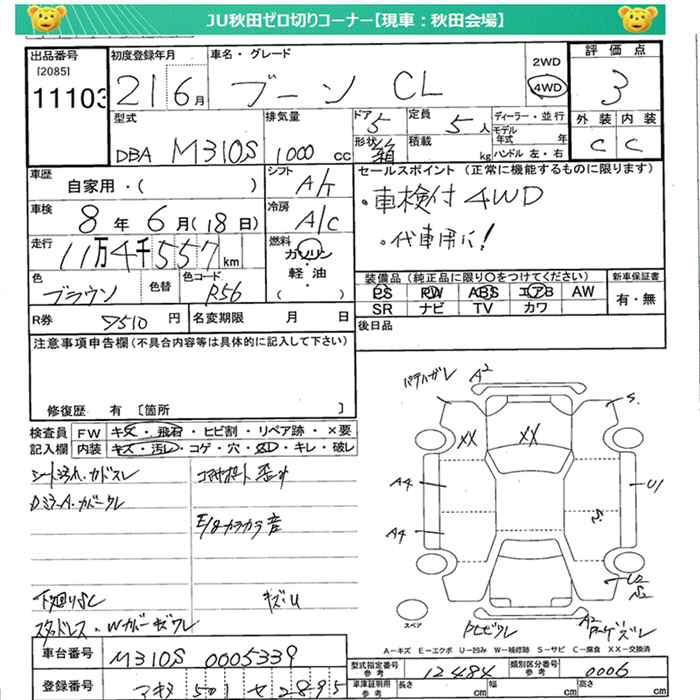 JU秋田ゼロ切りコーナー【現車：秋田会場】
出品番号 初度登録年月 車名・グレード 2WD 評価点
[2085]
11103 21 6月 ブーン CL 4WD 3
型式 排気量 ドア 定員 ディーラー・並行 外装 内装
DBA M310S 1000cc 5 5人 モデル年式 年 C C
形状 箱 積載 kg ハンドル 左・右
車歴 シフト セールスポイント (正常に機能するものに限ります)
自家用・( ) A/T ・車検付 4WD
車検 8年 6月(18日) 冷房 A/C ・代車用に!
走行 11万4千557km 燃料 ガソリン
軽・油
( )
色 色替 色コード 装備品 (純正品に限り○をつけてください) 新車保証書
ブラウン R56 PS PW ABS エアB AW 有・無
SR ナビ TV カワ
R券 8510円 名変期限 月 日 後日品
注意事項申告欄(不具合内容等は具体的に記入して下さい)
修復歴 有 [箇所 ]
検査員 FW キズ・飛石・ヒビ割・リペア跡・×要
記入欄 内装 キズ・汚レ・コゲ・穴・凹・キレ・破レ
A2
S.
XX XX
A4 U1
A4 S.
U2
S2
下廻りサビ キズU
スペア A2
A-キズ E-エクボ U-凹み W-補修跡 S-サビ C-腐食 XX-交換済
車台番号 M310S 0005339 型式指定番号 参考 12484 類別区分番号 参考 0006
登録番号 501 セ 2895 車庫証明用 参考 長さ cm 幅 cm 高さ cm